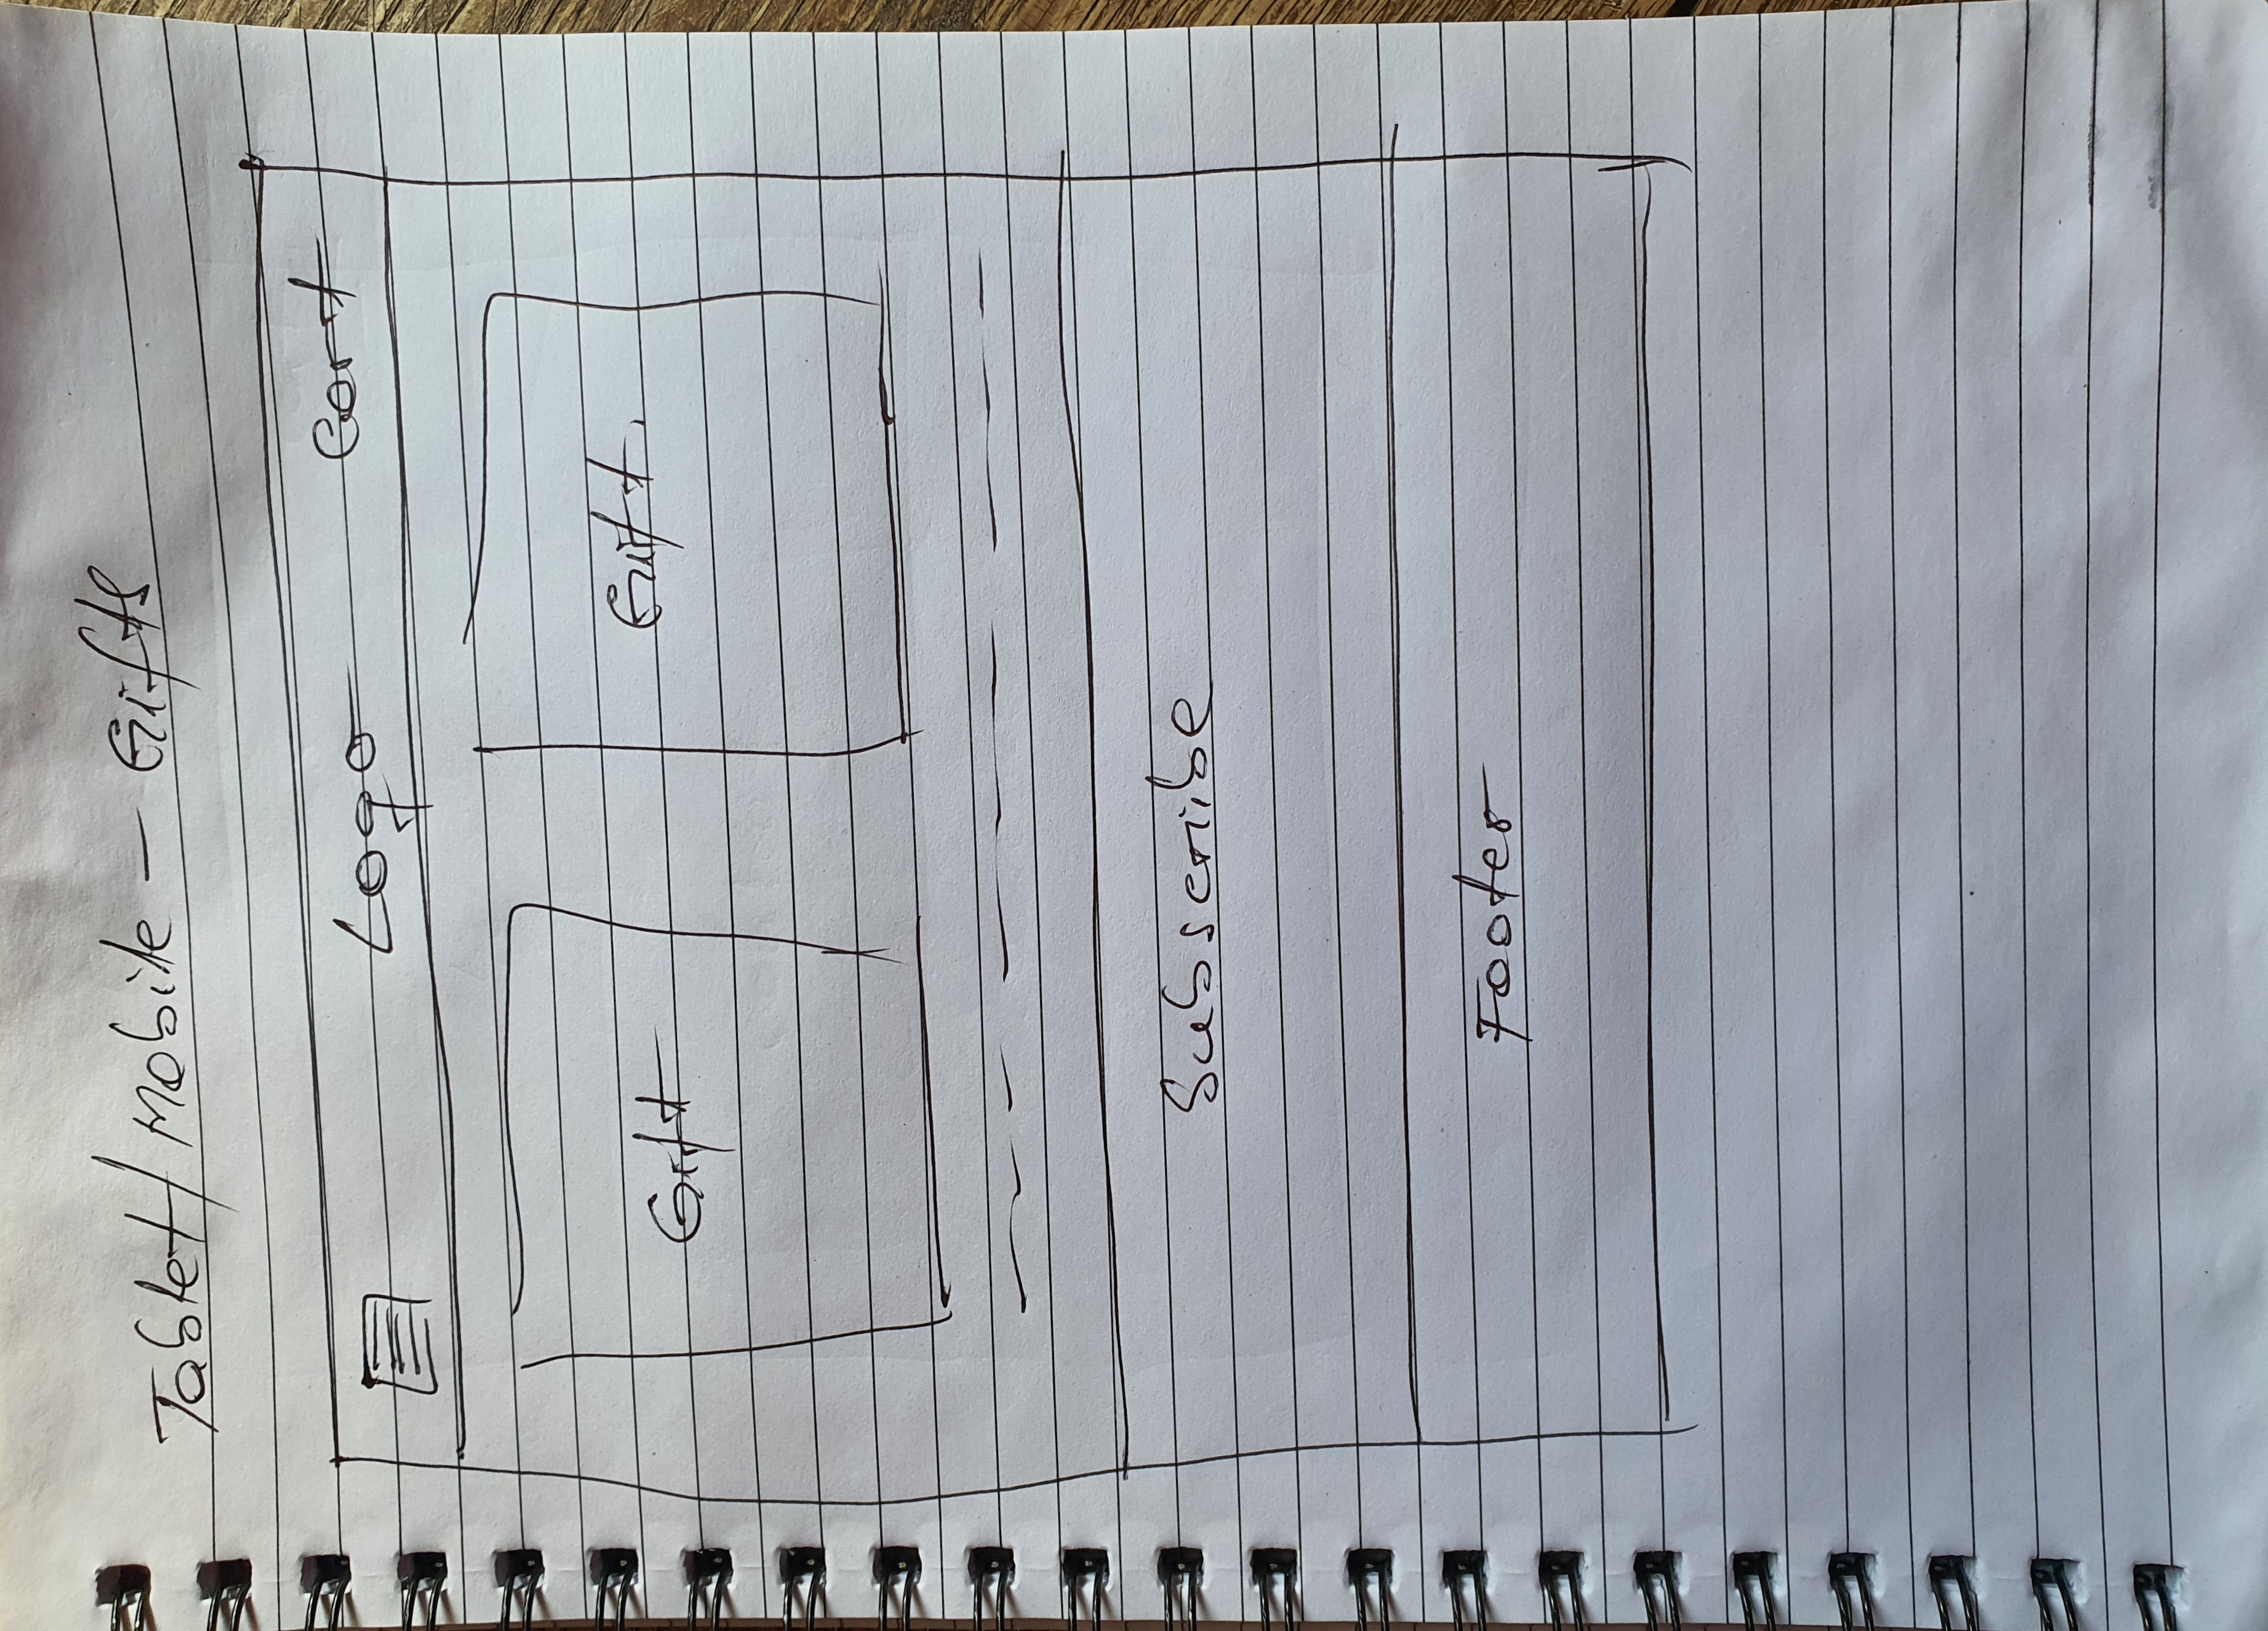 Tablet/Mobile - Gifts
Logo Cart
Gift Gift.
Subscribe
Footer